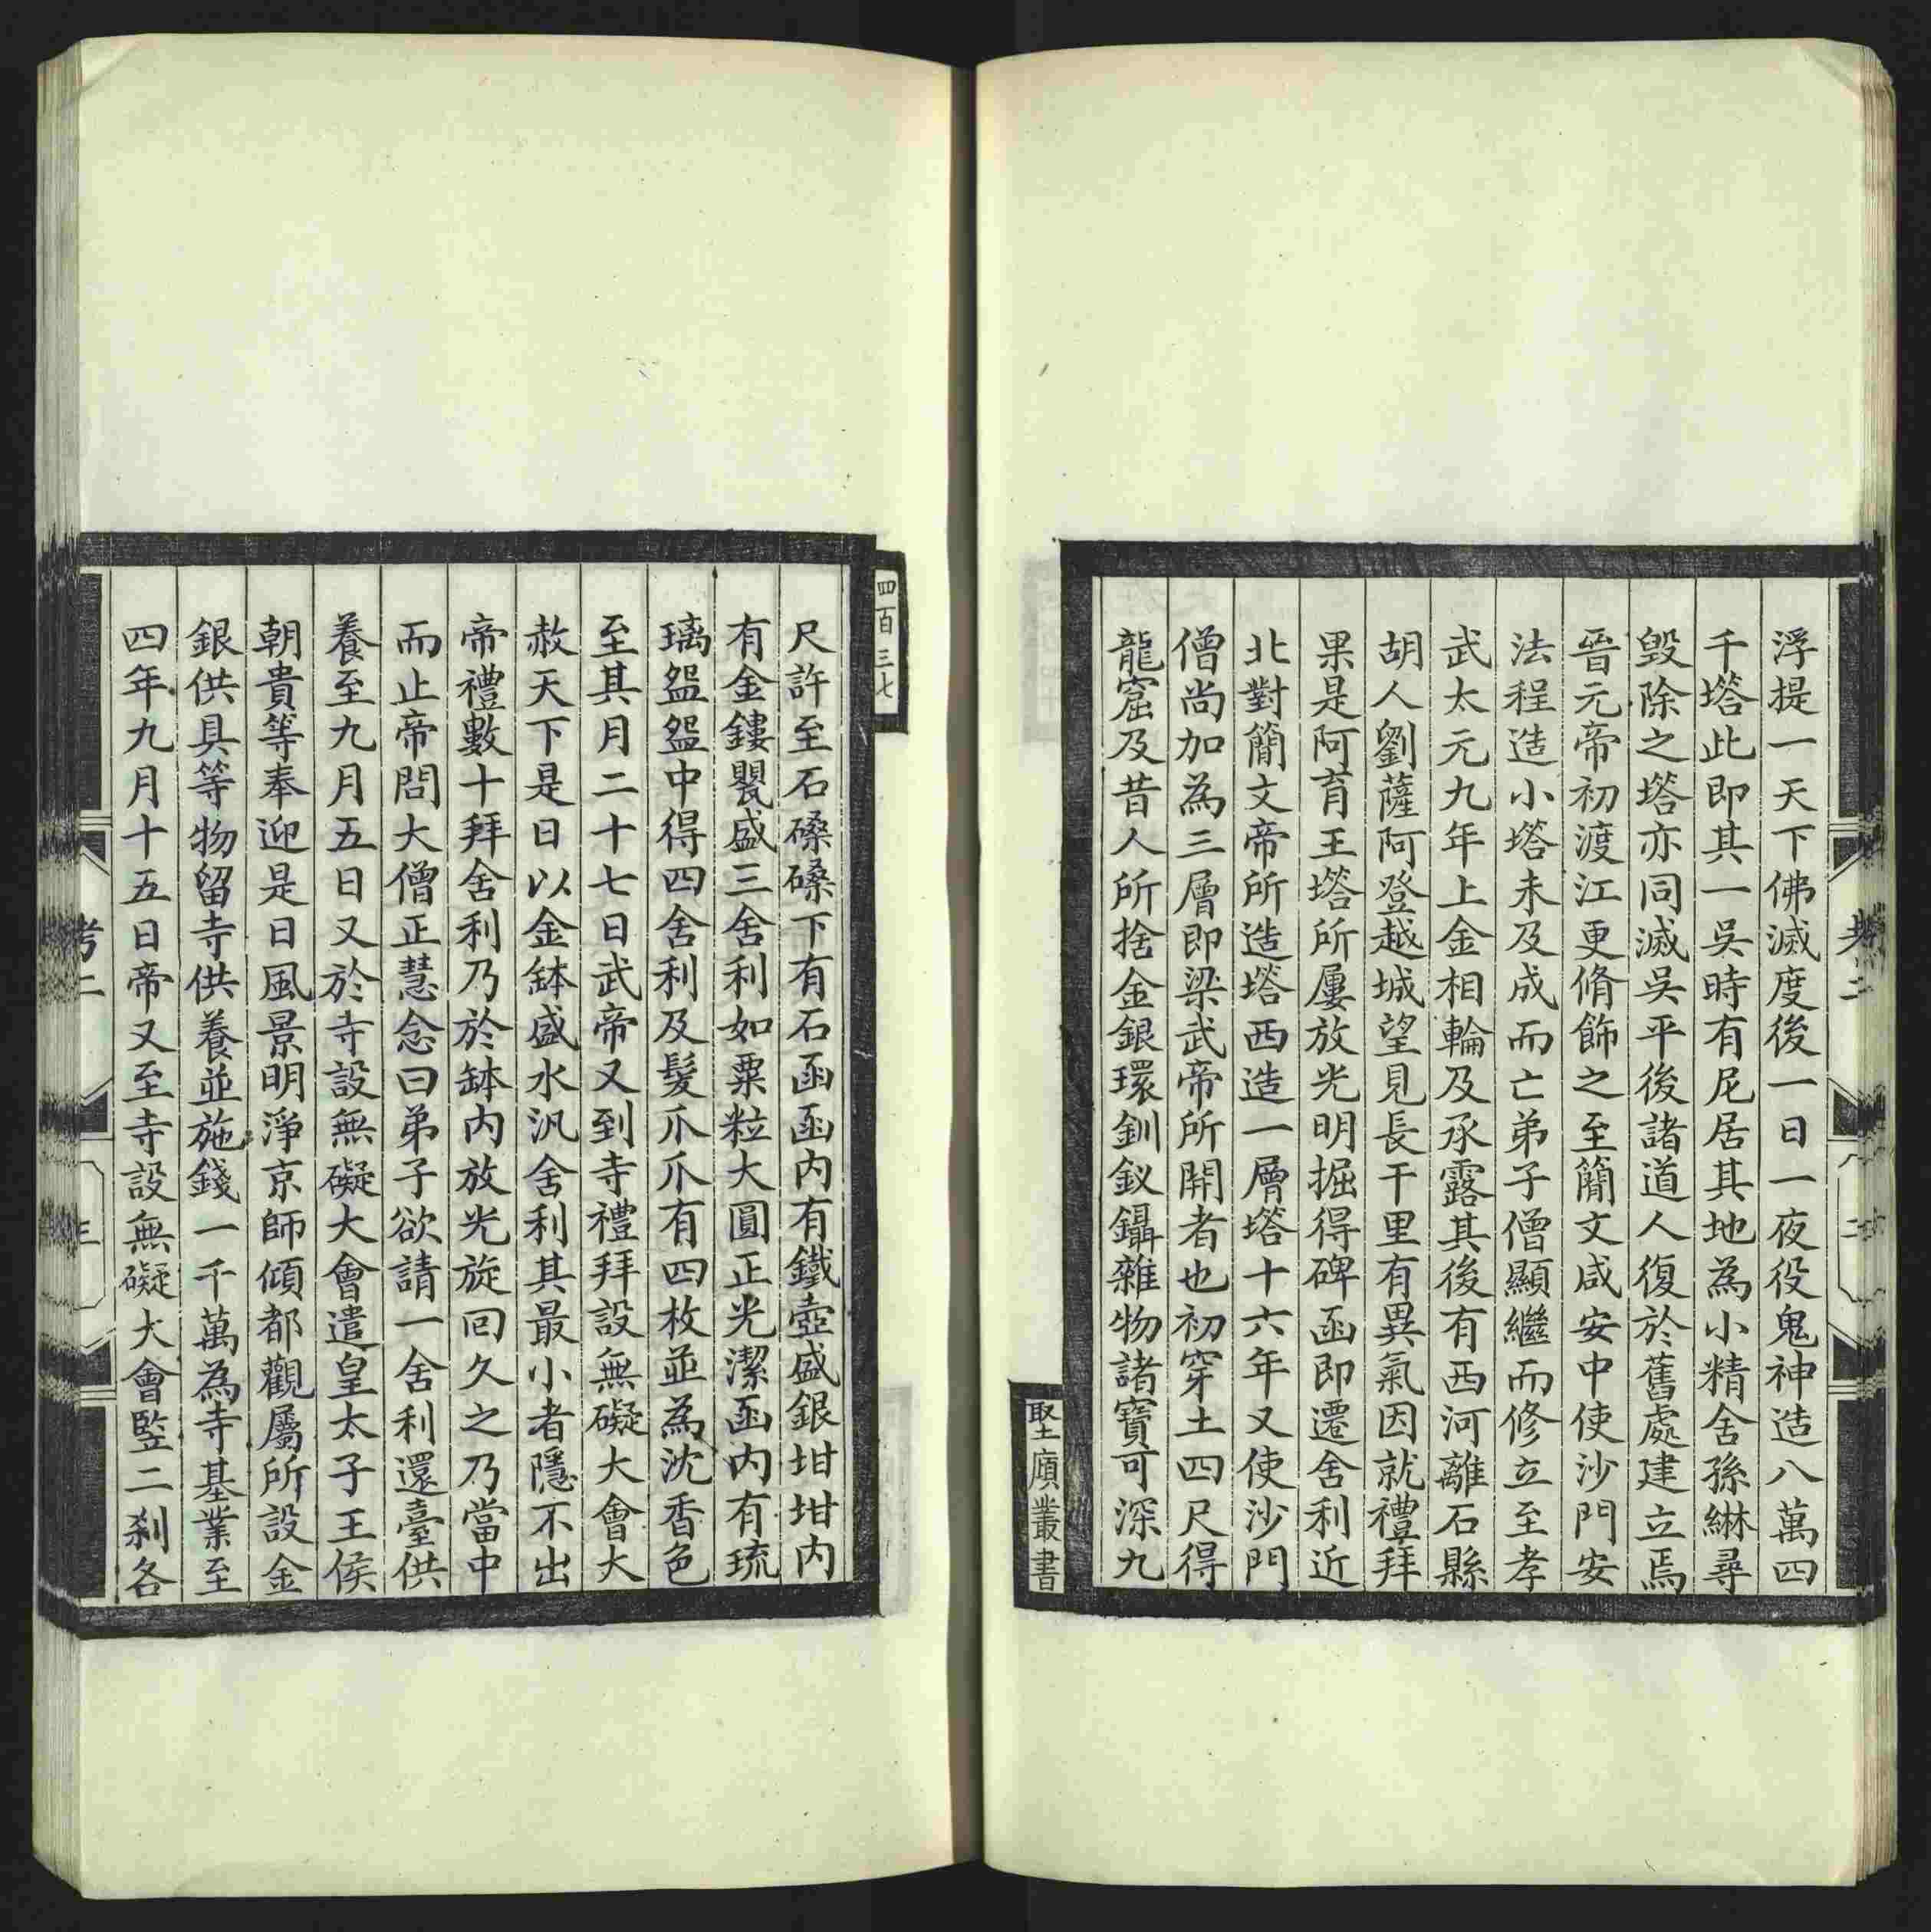 浮提一天下佛滅度後一日一夜役鬼神造八萬四
千塔此即其一吳時有尼居其地為小精舍孫綝尋
毀除之塔亦同滅吳平後諸道人復於舊處建立焉
晉元帝初渡江更脩飾之至簡文咸安中使沙門安
法程造小塔未及成而亡弟子僧顯繼而修立至孝
武太元九年上金相輪及承露其後有西河離石縣
胡人劉薩阿登越城望見長干里有異氣因就禮拜
果是阿育王塔所屢放光明掘得碑函即遷舍利近
北對簡文帝所造塔西造一層塔十六年又使沙門
僧尚加為三層即梁武帝所開者也初穿土四尺得
龍窟及昔人所捨金銀環釧釵鑷雜物諸寶可深九
堅𢊊叢書
四百三七
尺許至石磉磉下有石函函內有鐵壺盛銀坩坩內
有金鏤甖盛三舍利如粟粒大圓正光潔函內有琉
璃盌盌中得四舍利及髮爪爪有四枚並為沈香色
至其月二十七日武帝又到寺禮拜設無礙大會大
赦天下是日以金鉢盛水汎舍利其最小者隱不出
帝禮數十拜舍利乃於鉢內放光旋回久之乃當中
而止帝問大僧正慧念曰弟子欲請一舍利還臺供
養至九月五日又於寺設無礙大會遣皇太子王侯
朝貴等奉迎是日風景明淨京師傾都觀屬所設金
銀供具等物留寺供養並施錢一千萬為寺基業至
四年九月十五日帝又至寺設無礙大會豎二剎各
考二